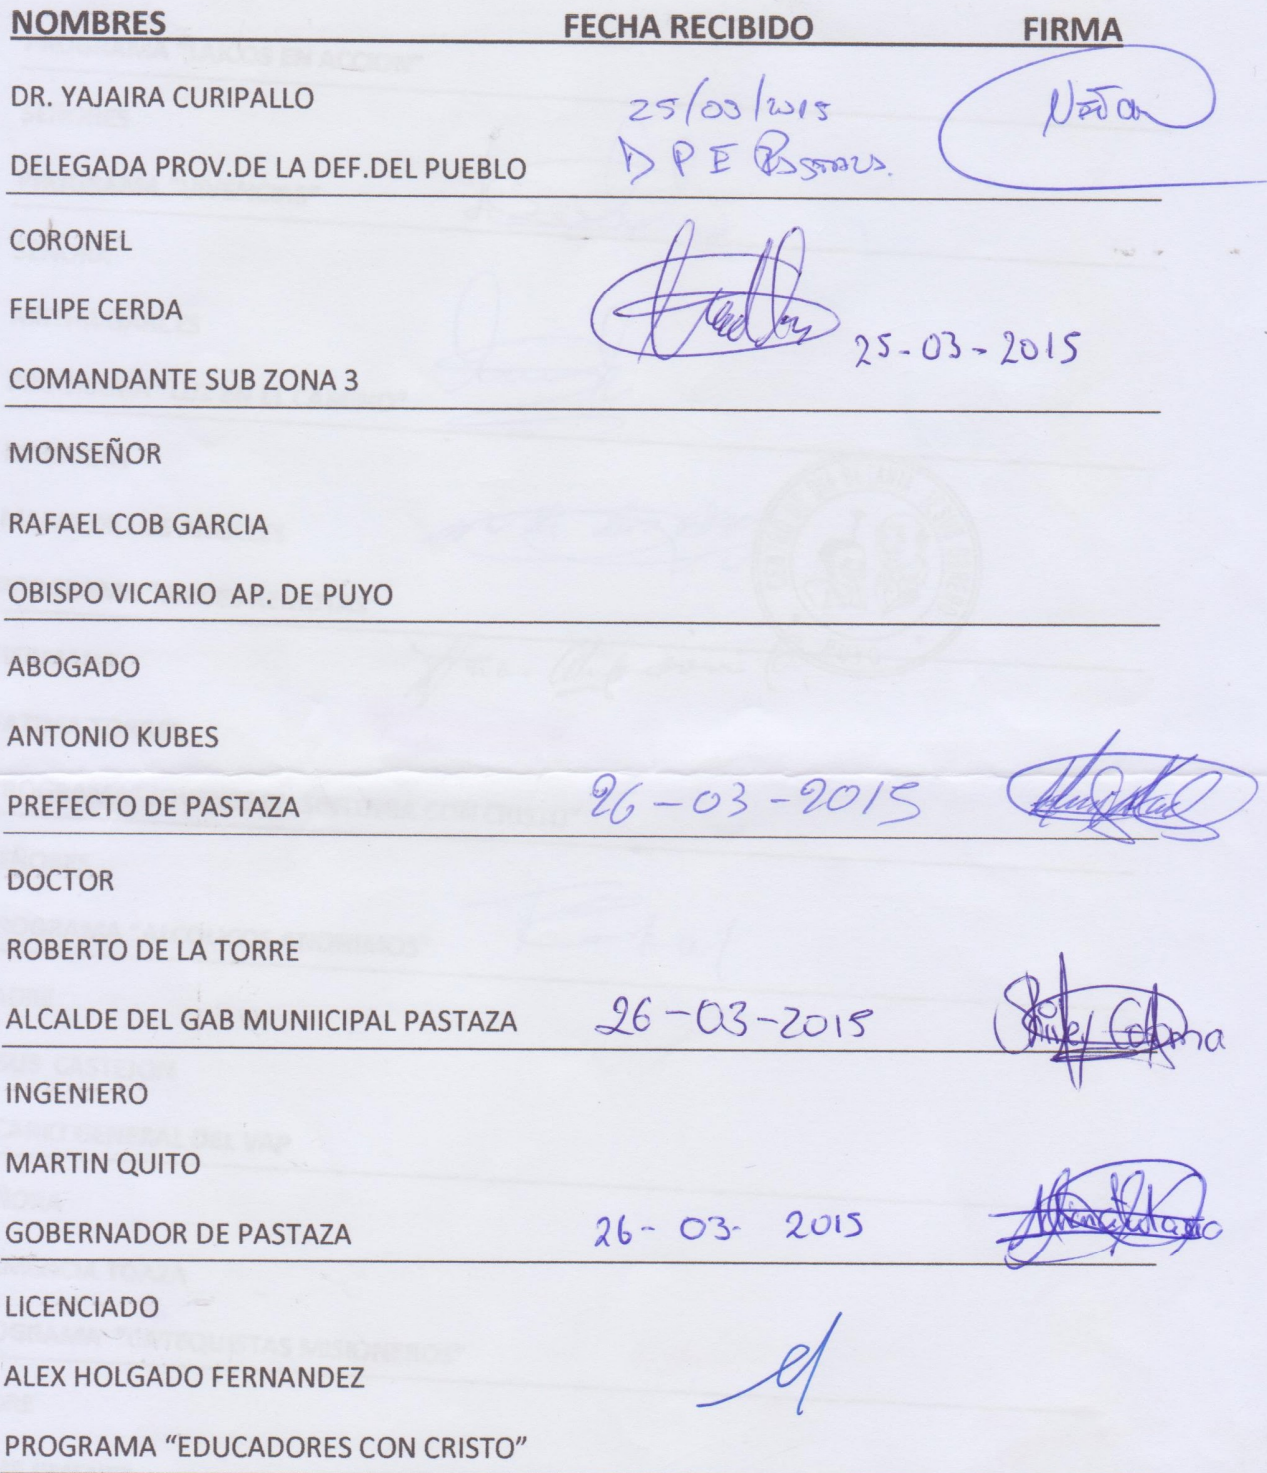 NOMBRES FECHA RECIBIDO FIRMA
DR. YAJAIRA CURIPALLO 25/03/2015
DELEGADA PROV.DE LA DEF.DEL PUEBLO D P E
CORONEL
FELIPE CERDA 25-03-2015
COMANDANTE SUB ZONA 3
MONSEÑOR
RAFAEL COB GARCIA
OBISPO VICARIO AP. DE PUYO
ABOGADO
ANTONIO KUBES
PREFECTO DE PASTAZA 26-03-2015
DOCTOR
ROBERTO DE LA TORRE
ALCALDE DEL GAB MUNIICIPAL PASTAZA 26-03-2015
INGENIERO
MARTIN QUITO
GOBERNADOR DE PASTAZA 26-03-2015
LICENCIADO
ALEX HOLGADO FERNANDEZ
PROGRAMA “EDUCADORES CON CRISTO”